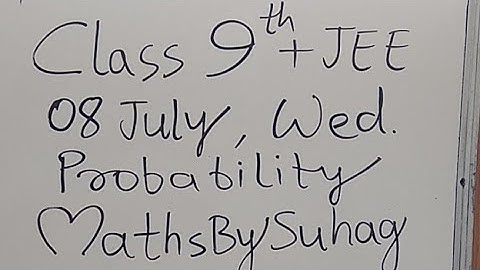 Class 9th + JEE
08 July, Wed.
Probability
MathsBySuhag